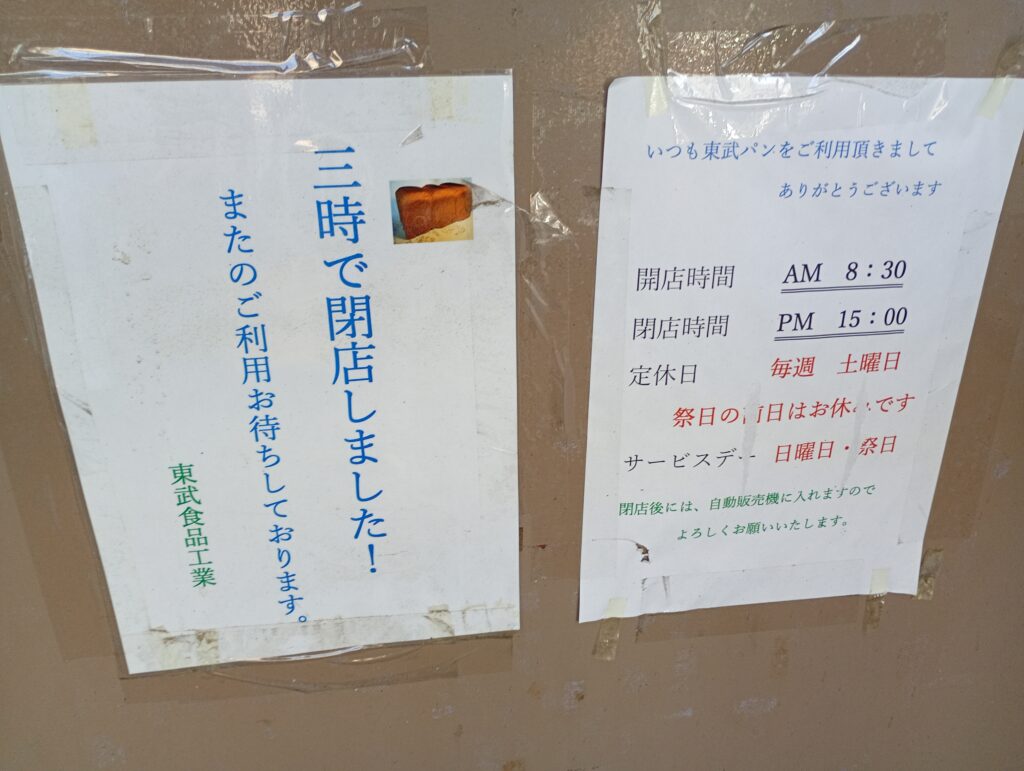 三時で閉店しました!
またのご利用お待ちしております。
東武食品工業
いつも東武パンをご利用頂きまして
ありがとうございます
開店時間 AM 8:30
閉店時間 PM 15:00
定休日 毎週 土曜日
祭日の前日はお休みです
サービスデー 日曜日・祭日
閉店後には、自動販売機に入れますので
よろしくお願いいたします。